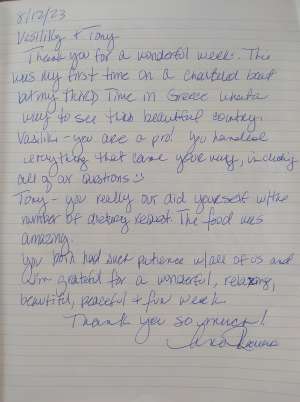 8/12/23
Vasiliky + Tony
Thank you for a wonderful week. This
was my first time on a chartered boat
but my THIRD Time in Greece what a
way to see this beautiful country.
Vasiliki - you are a pro! you handled
everything that came your way, including
all of our questions
Tony - you really out did yourself w/the
number of dietary request. The food was
amazing.
You both had such patience w/all of us and
I'm grateful for a wonderful, relaxing,
beautiful, peaceful + fun week
Thank you so much!